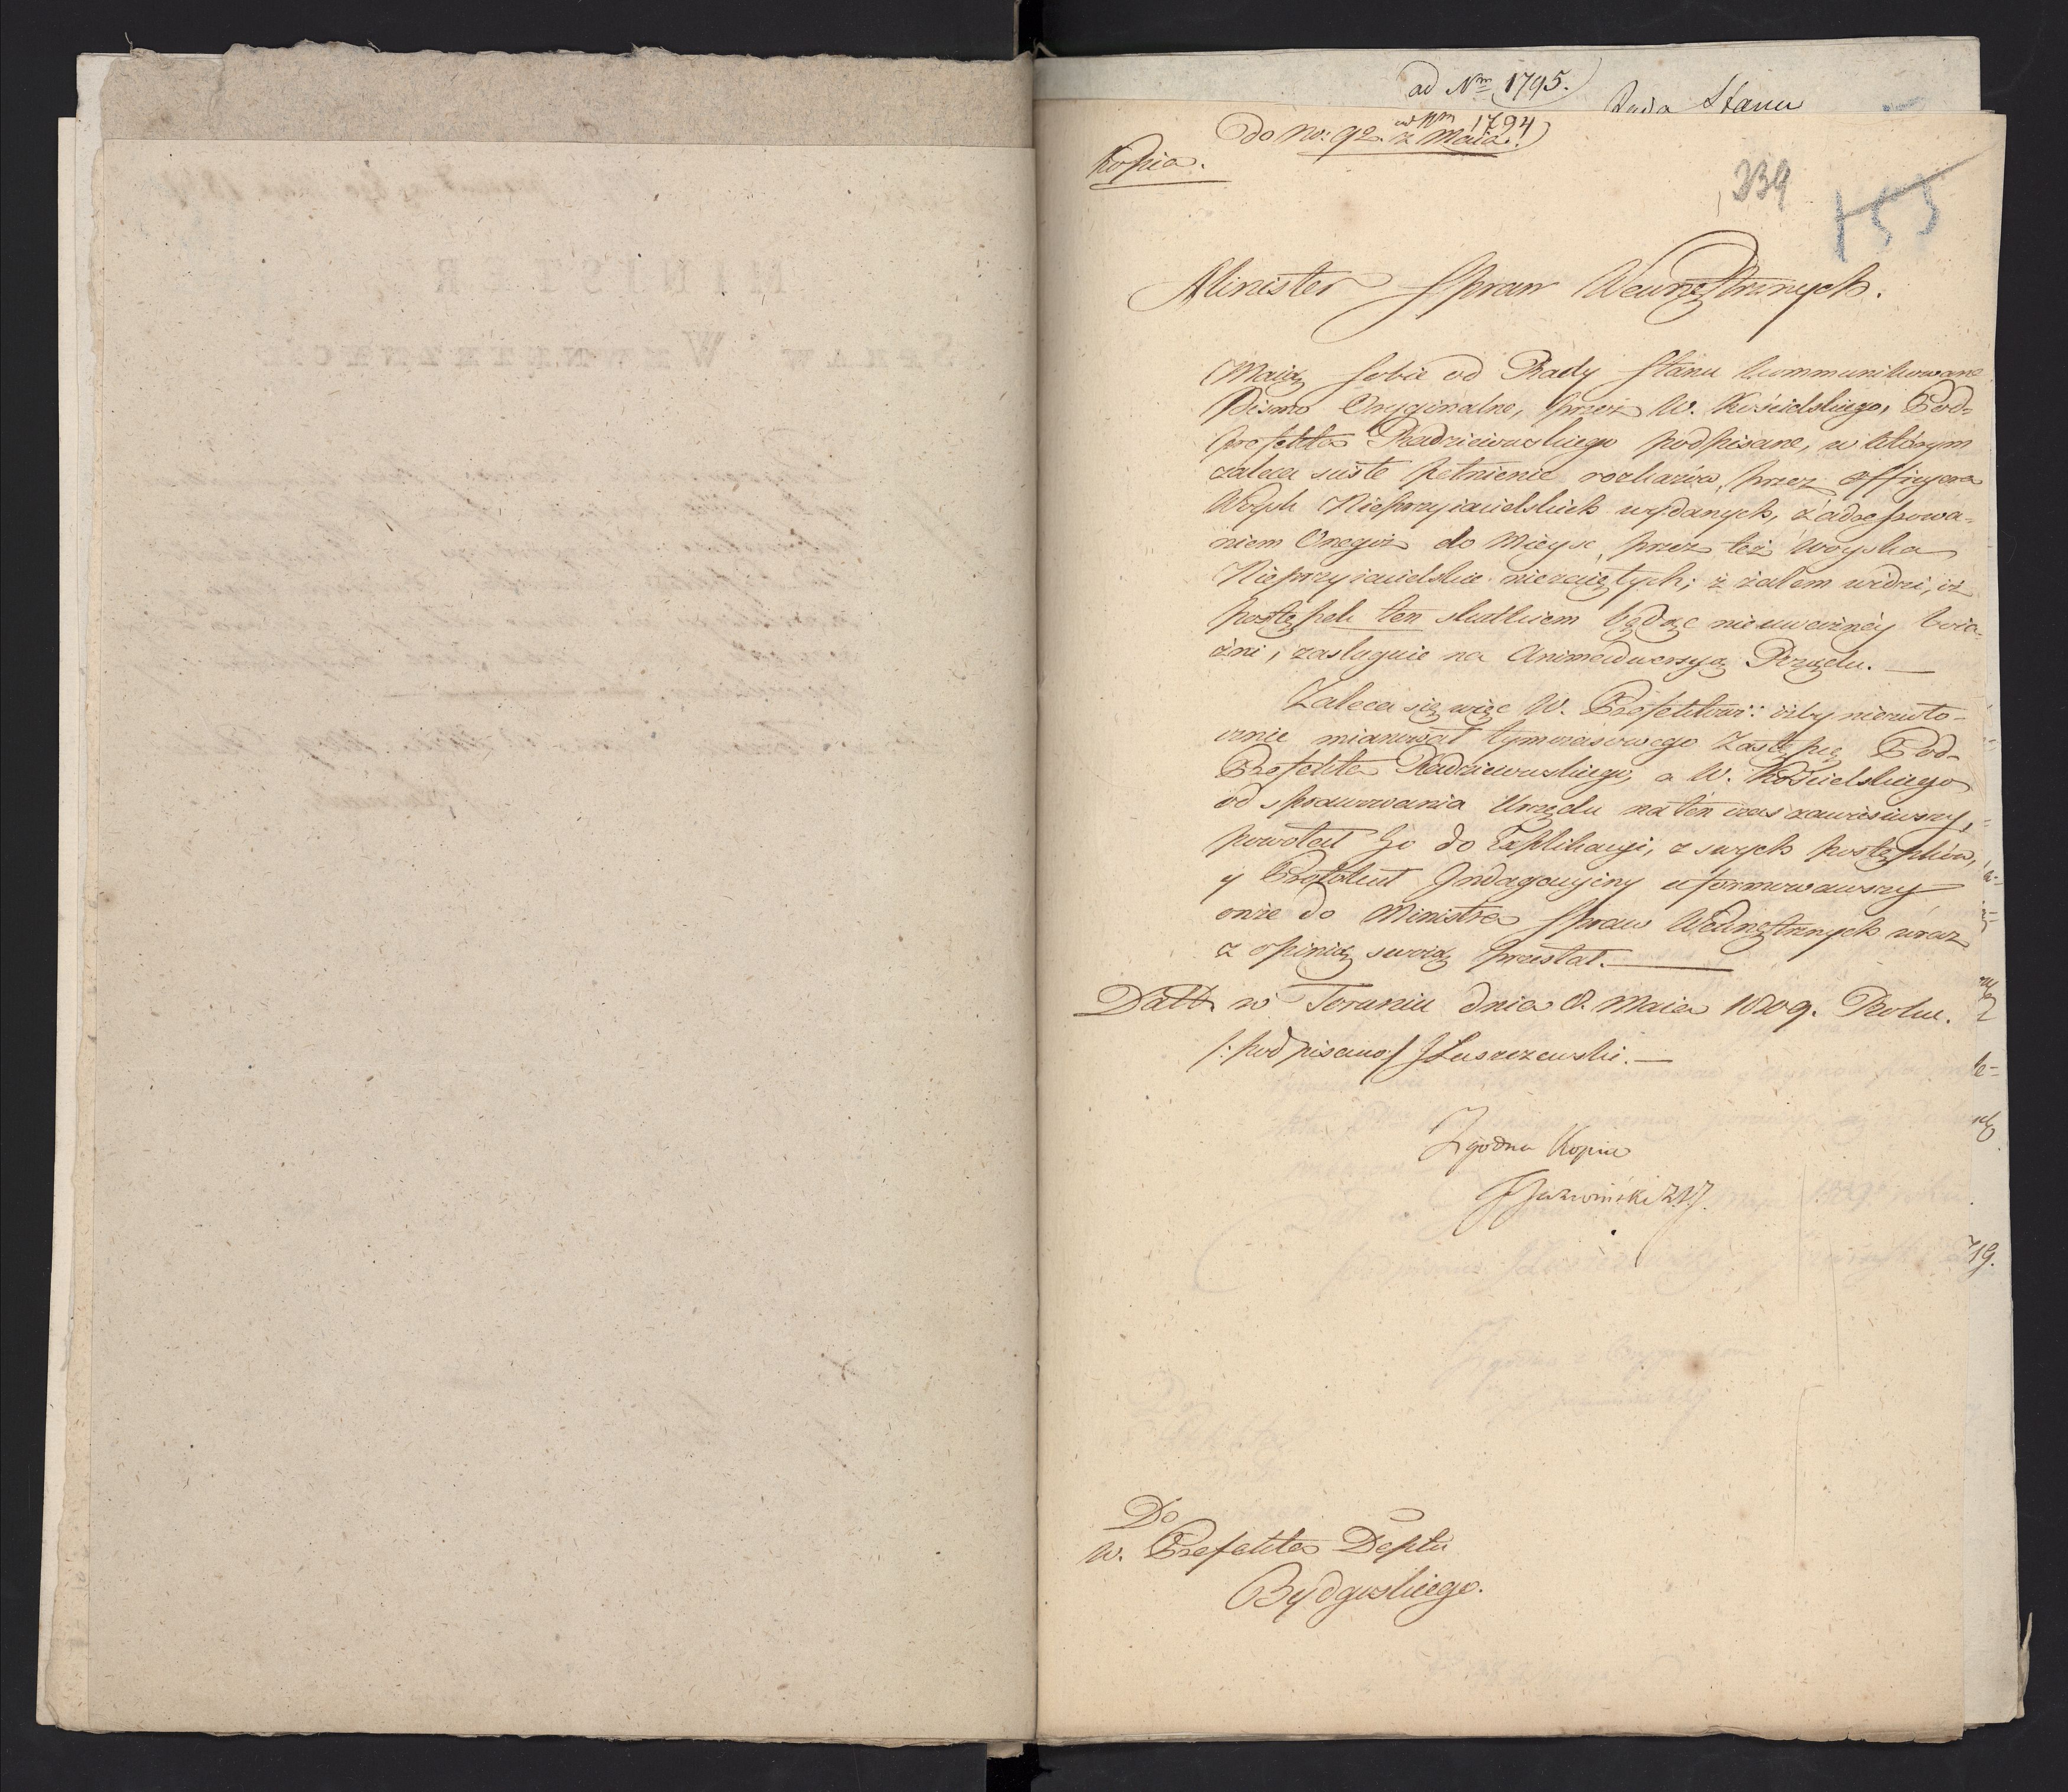 ad Nrm 1795.
Rada Stanu
ad Nrm 1794
do No: 92. z Maia.
Kopia.
339
155
Minister Spraw Wewnętrznych.
Maiąc sobie od Rady Stanu kommunikowane
Pismo Oryginalne, przez W. Kościelskiego, Pod-
prefekta Radzieiewskiego podpisane, w którym
zaleca ścisłe pełnienie rozkazów, przez Officyera
Woysk Nieprzyiacielskich wydanych, z adressowa-
niem Onegoż do Mieysc, przez też Woyska
Nieprzyiacielskie niezaiętych; z żalem widzi, iż
postępek ten skutkiem będąc nieuważnéy boia-
źni, zasługuie na Animadwersyą Rządu. —
Zaleca się więc W. Prefektowi: iżby niezwło-
cznie mianował tymczasowego Zastępcę Pod-
Prefekta Radzieiewskiego, a W. Kościelskiego
od sprawowania Urzędu na ten czas zawiesiwszy,
powołał Go do Explikacyi, z swych postępków,
y Protokuł Indagacyiny uformowawszy
onże do Ministra Spraw Wewnętrznych wraz
z opinią swoią przesłał. —
Datt w Toruniu dnia 8. Maia 1809. Roku.
/: podpisano:/ J Łuszczewski. —
Zgodna Kopia
Do
W. Prefekta Deptu
Bydgoskiego.